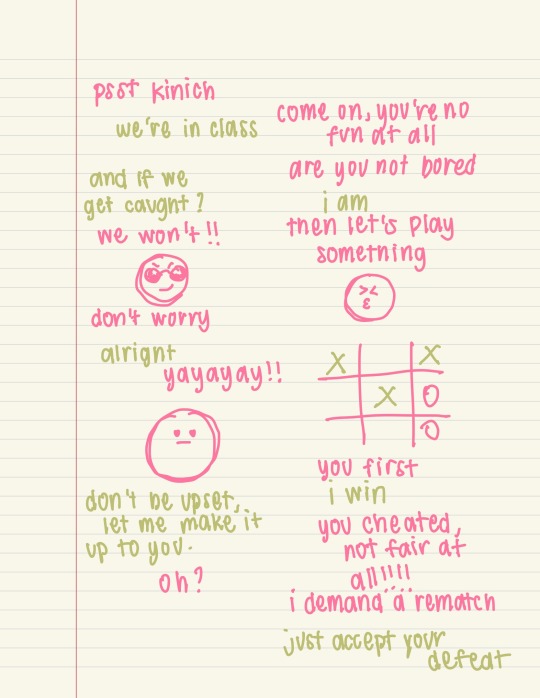 psst kinich
we're in class
come on, you're no
fun at all
are you not bored
i am
then let's play
something
and if we
get caught?
we won't!!
don't worry
alright
yayayay!!
X X
X O
O
you first
i win
you cheated,
not fair at
all!!!!
i demand a rematch
just accept your
defeat
don't be upset,
let me make it
up to you.
oh?